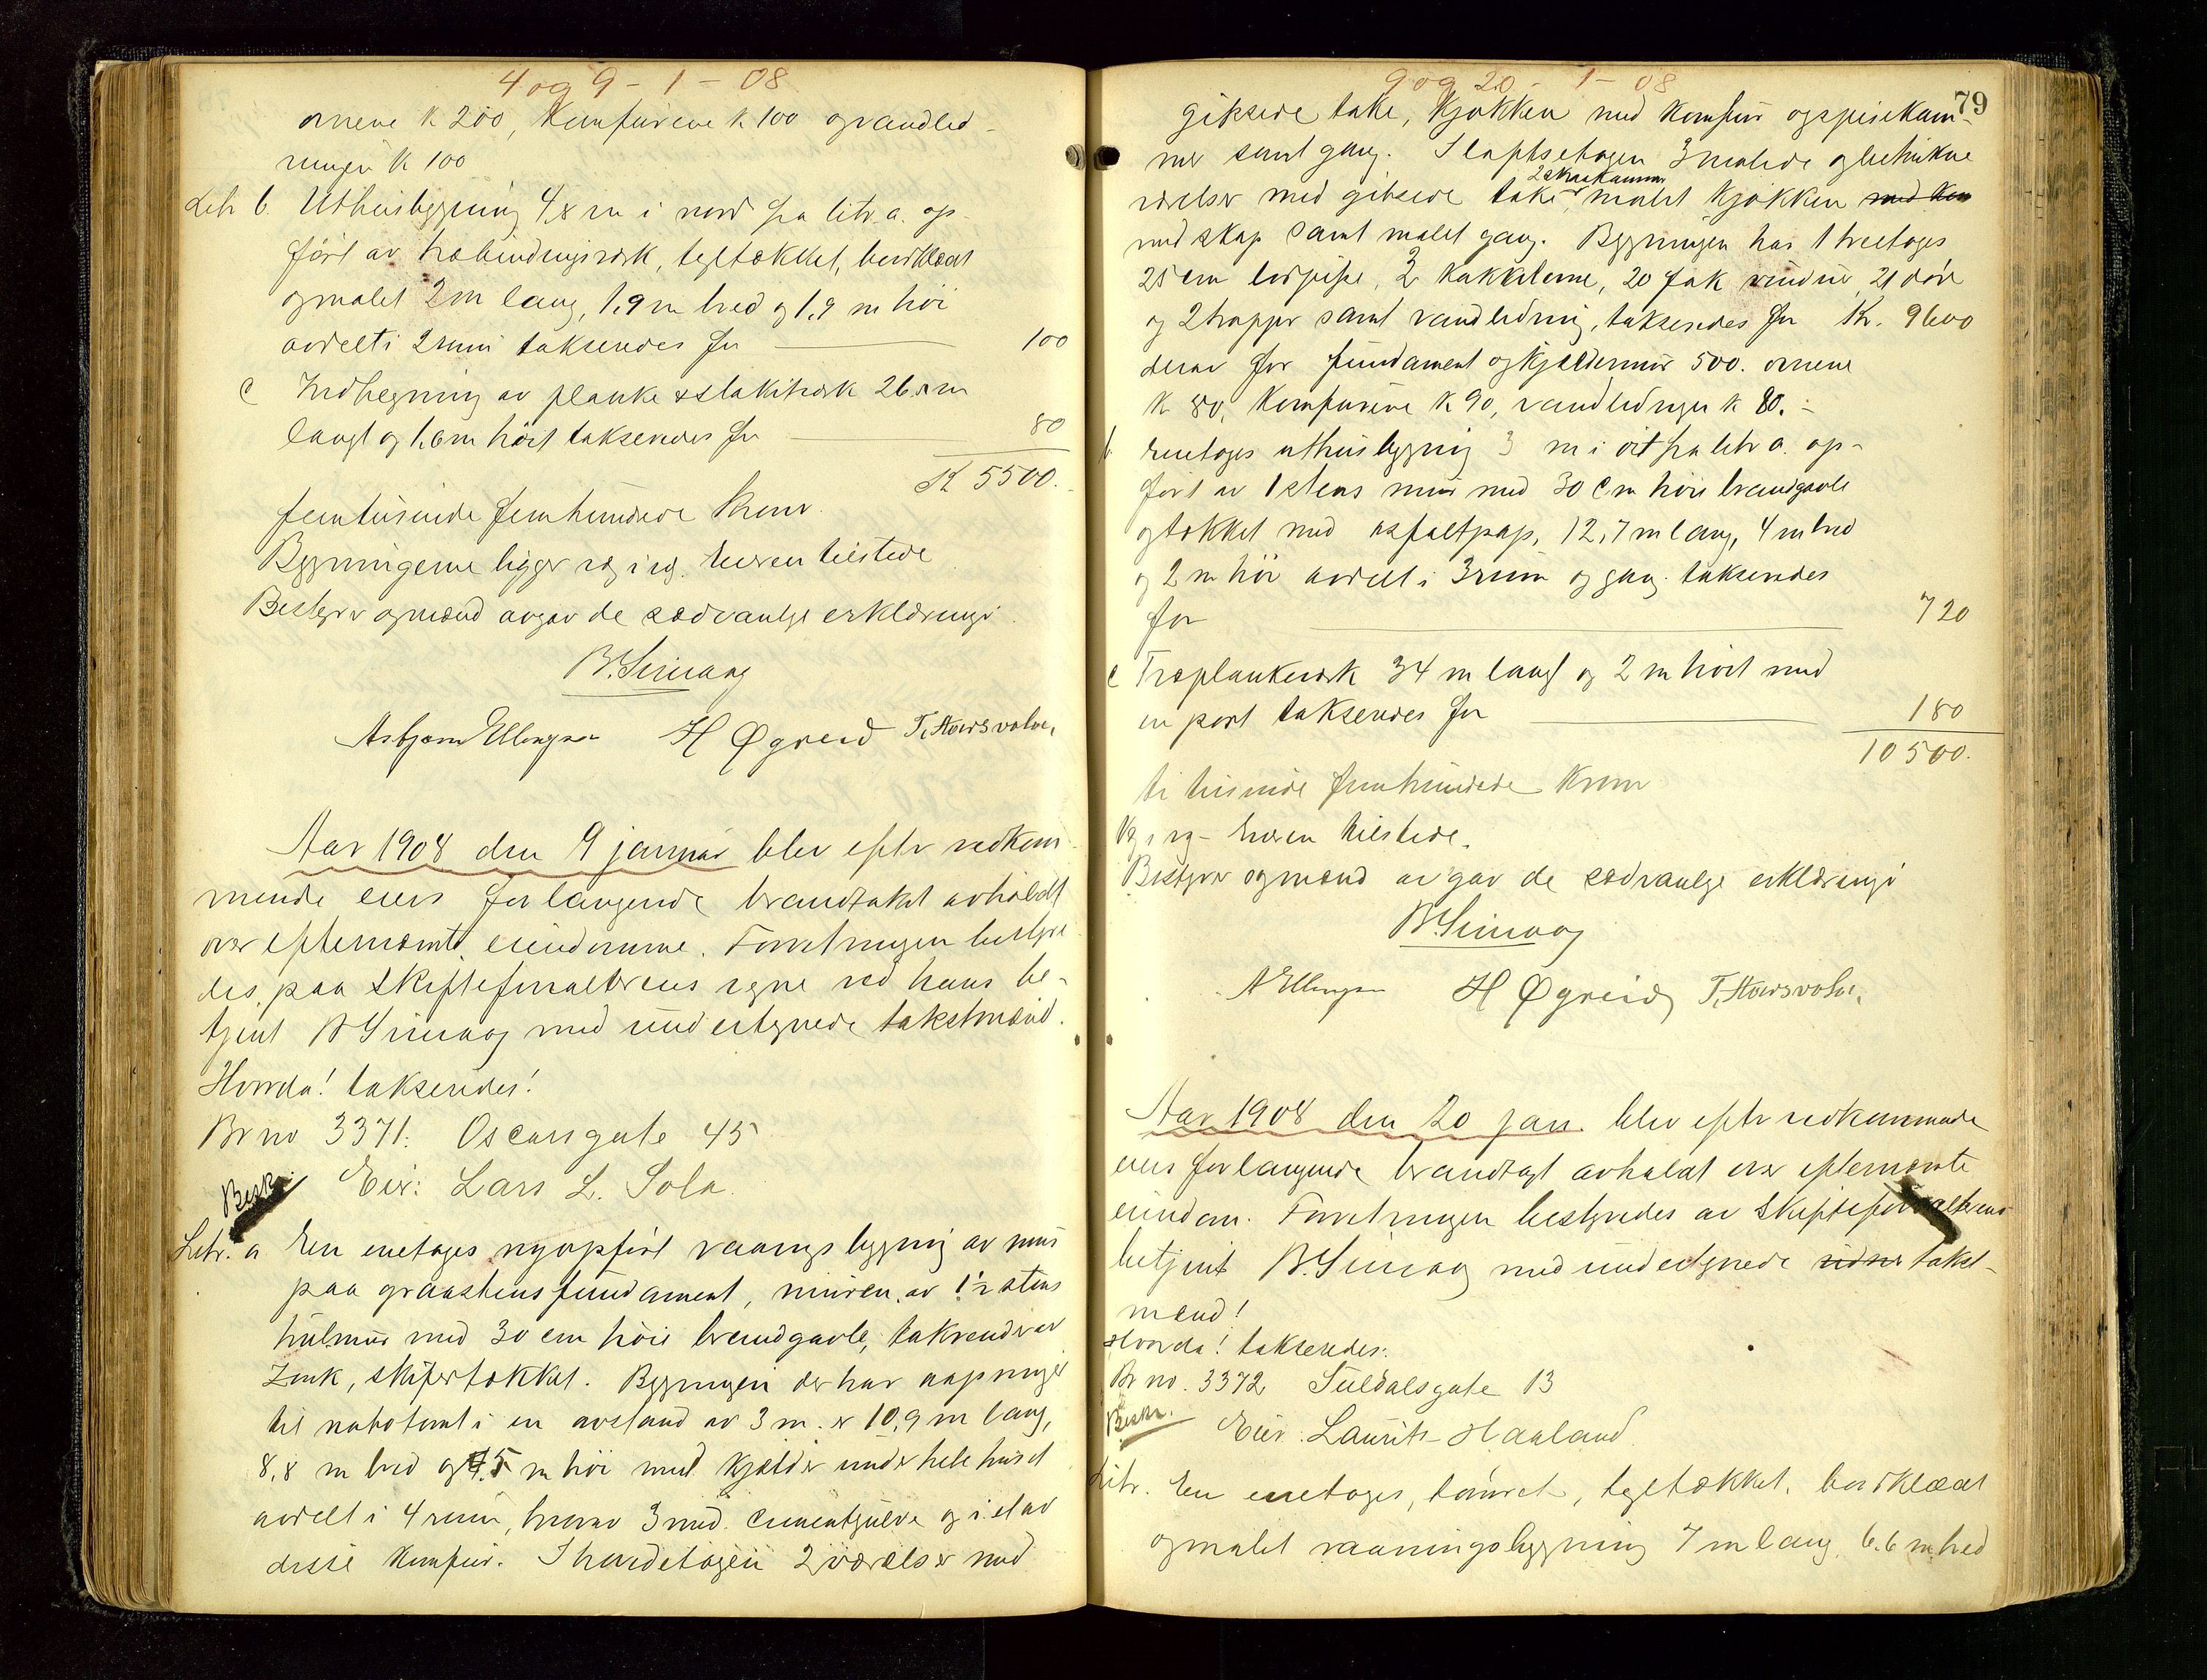 4 og 9 - 1 - 08
ovnene k 200, Komfurene k 100 og vandled-
ningen k 100
Litr b. Uthusbygning 4,8 m i nord fra litr a. op-
ført av træbindingsverk, tegltækket, bordklædt
og malet 2 m lang, 1,9 m bred og 1,9 m høi
avdelt i 2 rum taksendes for 100
c Indhegning av planke & stakitverk 26 m
langt og 1,6 m høit taksendes for 80
K 5500.
femtusinde femhundrede Kroner.
Bygningerne ligger i rg. Eieren tilstede
Bestyrer og mænd avgav de sædvanlige erklæringer.
B. Simang
Asbjørn Ellingsen H Øgreid T. Aarsvoln.
Aar 1908 den 9 januar blev efter vedkom-
mende eiers forlangende brandtakst avholdt
over efternævnte eiendomme. Forretningen bestyre-
des paa Skifteforvalterens vegne ved hans be-
tjent B Simang med undertegnede takstmænd.
Hvorda! taksendes!
Br no 3371. Oscarsgate 45
Beskr. Eier: Lars L. Sola.
Litr. a En enetages nyopført vaaningsbygning av mur
paa graastensfundament, muren av 1½ stens
hulmur med 30 cm høie brandgavle, takrender av
Zink, skifertækket. Bygningen der har aapninger
til nabotomt i en avstand av 3 m. er 10,9 m lang,
8,8 m bred og 7.5 m høi med kjælder under hele huset
avdelt i 4 rum, hvorav 3 med cementgulve og i et av
disse komfur. I hovedetagen 2 værelser med
9 og 20 - 1 - 08
79
gibsede take, kjøkken med komfur og spisekam-
mer samt gang. I loftsetagen 3 malede og betrukne
værelser med gibsede take, 2 skraakammer malet kjøkken med kom
med skap samt malet gang. Bygningen har 1 treetages
25 cm løspipe, 2 kakkelovne, 20 fak vinduer, 21 døre
og 2 trapper samt vandledning, taksendes for Kr. 9600
derav for fundament og kjældermur 500. ovnene
k 80, Komfurene k 90, vandledningen k 80. -
b Enetages uthusbygning 3 m i øst fra litr a. op-
ført av 1 stens mur med 30 cm høie brandgavle
og tækket med asfaltpap, 12,7 m lang, 4 m bred
og 2 m høi avdelt i 3 rum og gang. taksendes
for 720
c Træplankeverk 34 m langt og 2 m høit med
en port taksendes for 180
10500.
ti tusinde femhundrede Kroner
rg - Eieren tilstede.
Bestyrer og mænd avgav de sædvanlige erklæringer
B. Simang
A Ellingsen H Øgreid T. Aarsvoln.
Aar 1908 den 20 jan. blev efter vedkommende
eiers forlangende brandtakst avholdt over efternævnte
eiendom. Forretningen bestyredes av Skifteforvalterens
betjent B. Simang med undertegnede takst-
mænd!
Hvorda! taksendes:
Br no. 3372 Suldalsgate 13
Beskr. Eier. Laurits Haaland.
Litr. En enetages, tømret, tegltækket, bordklædt
og malet vaaningsbygning 7 m lang, 6.6 m bred